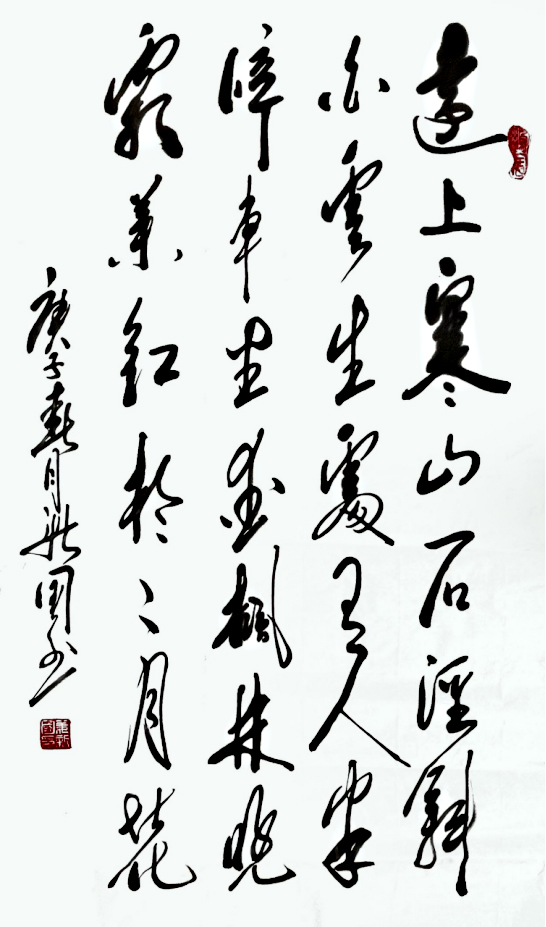 遠上寒山石徑斜
白雲生處有人家
停車坐愛楓林晚
霜葉紅於二月花
庚子春月新国书